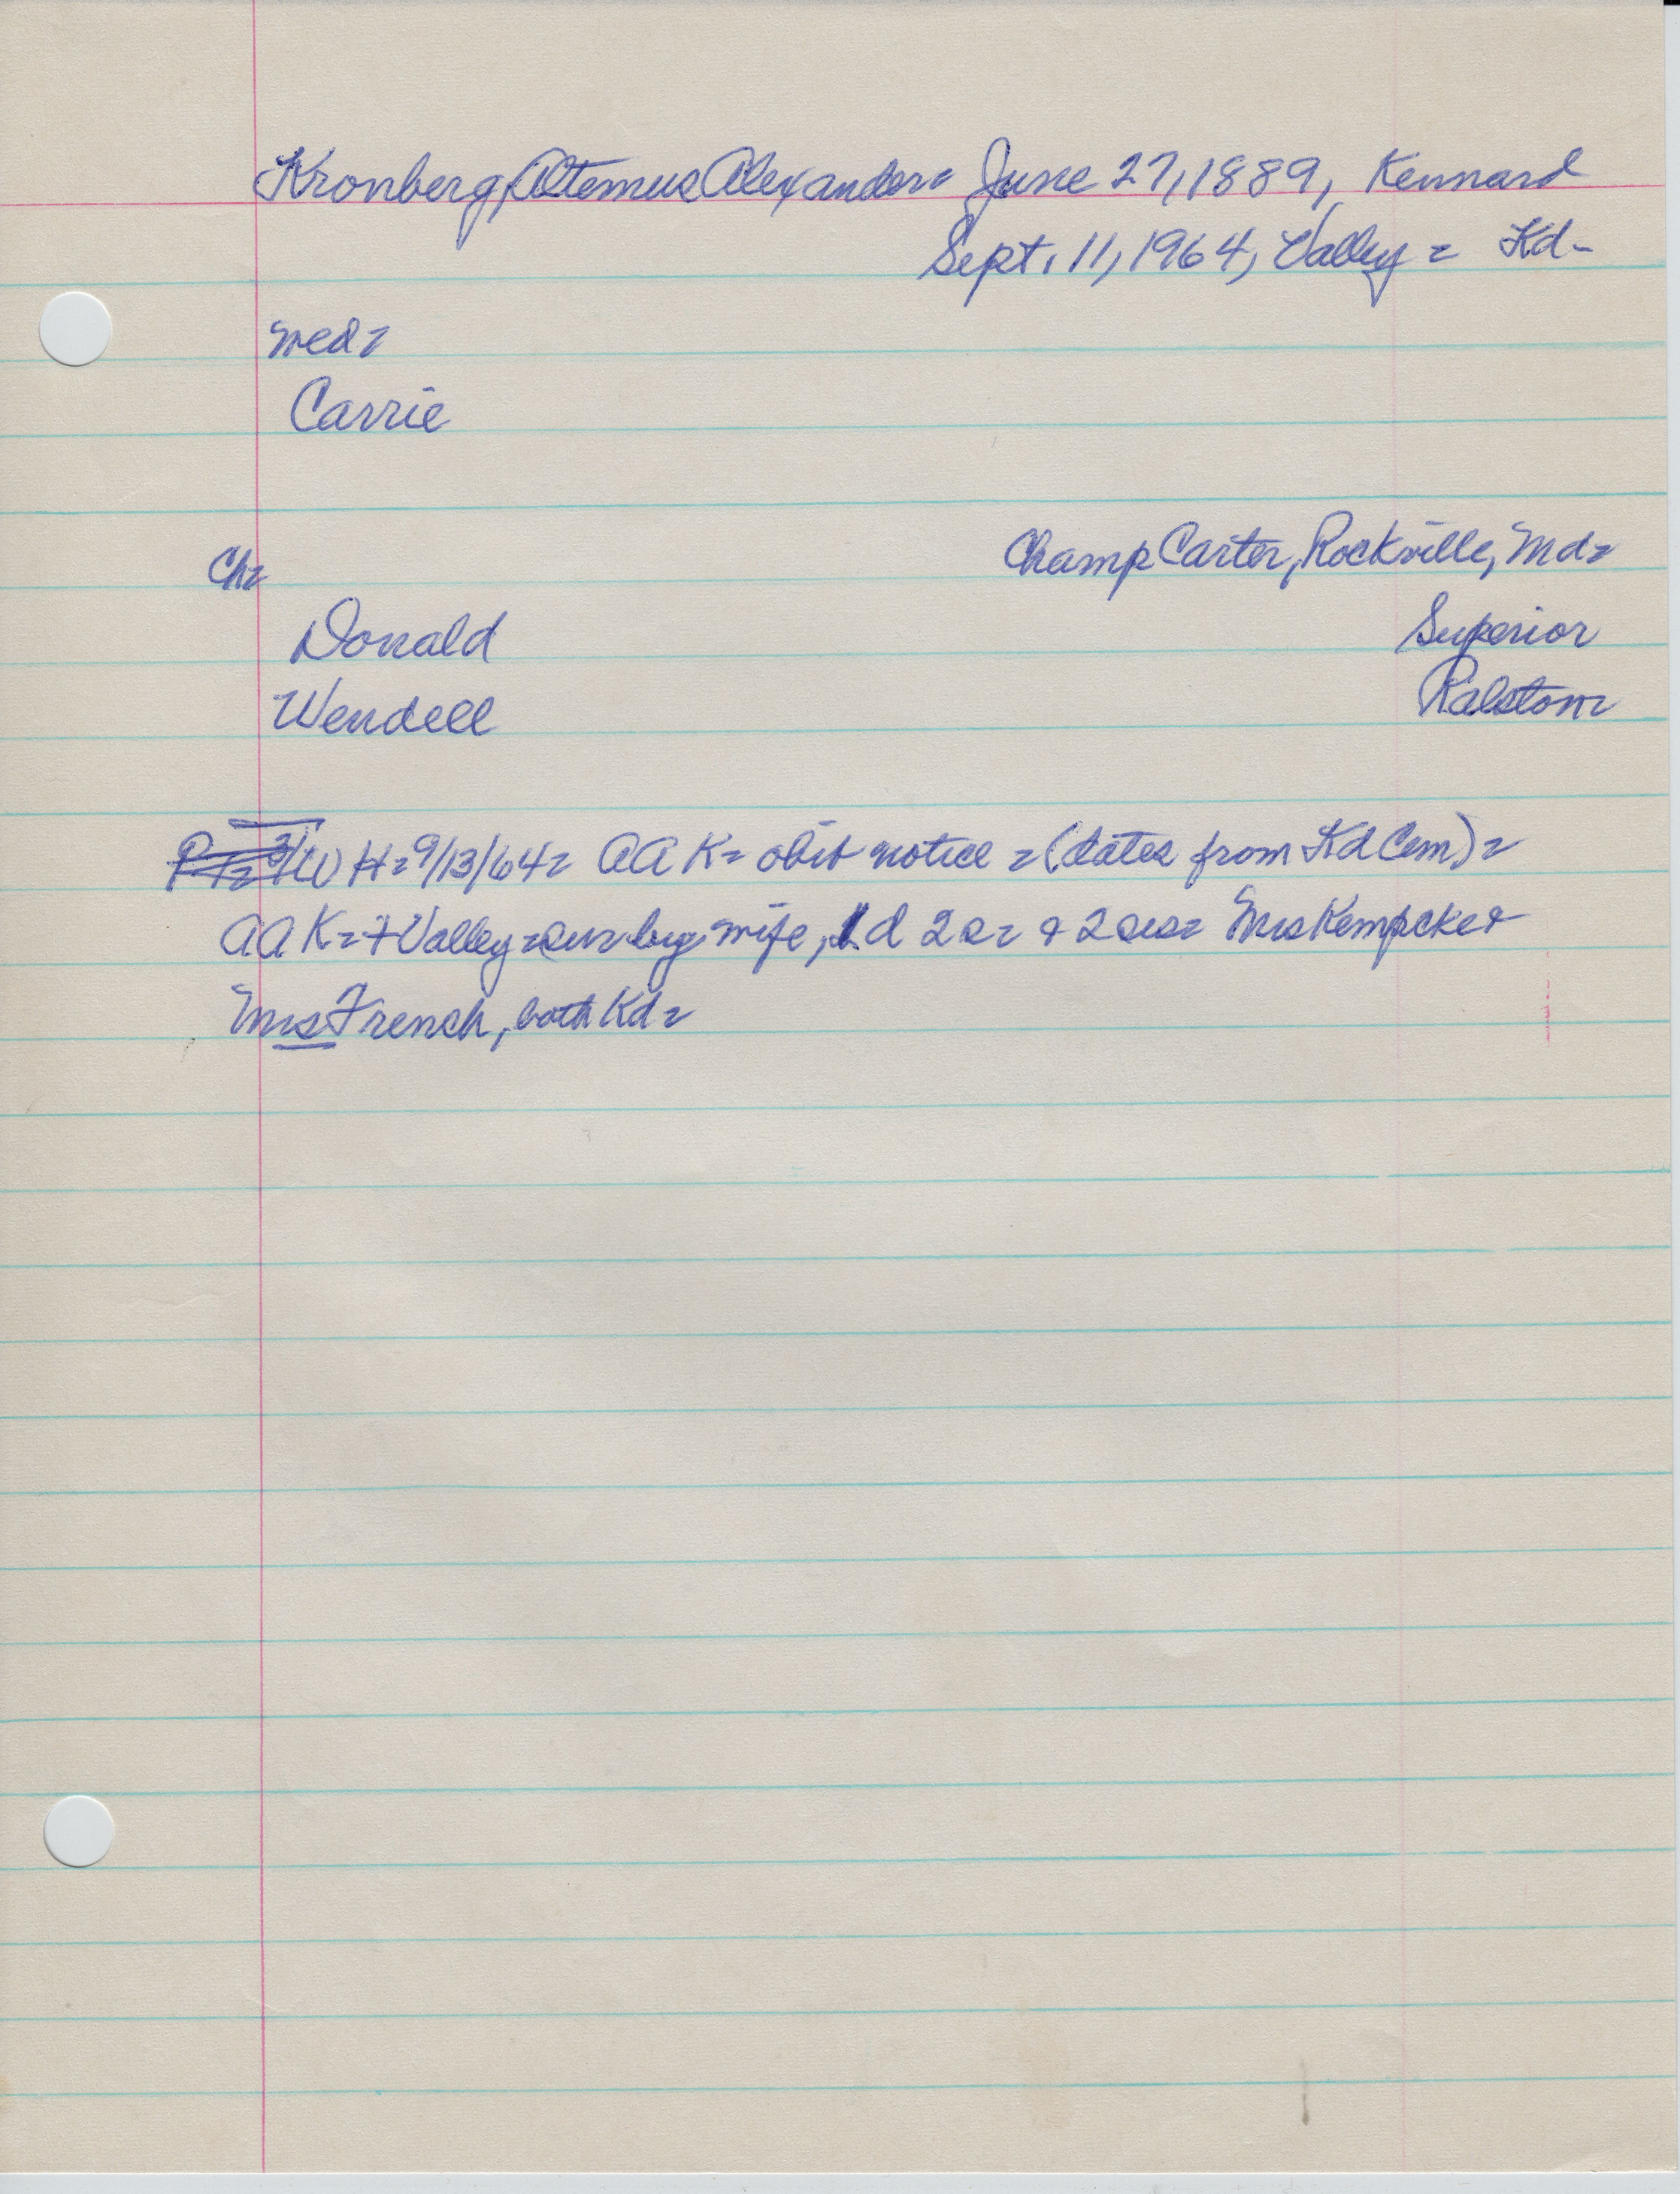 Kronberg, Altemus Alexander= June 27, 1889, Kennard
Sept. 11, 1964, Valley = Kd-
med=
Carrie
Champ Carter, Rockville, Md=
Ch=
Donald Superior
Wendell Ralston=
WH=9/13/64= AAK= obit notice =(dates from Kd Cem)=
AAK=+Valley=sur by wife, d 2s= & 2sis= Mrs Kempcke &
Mrs French, both Kd=